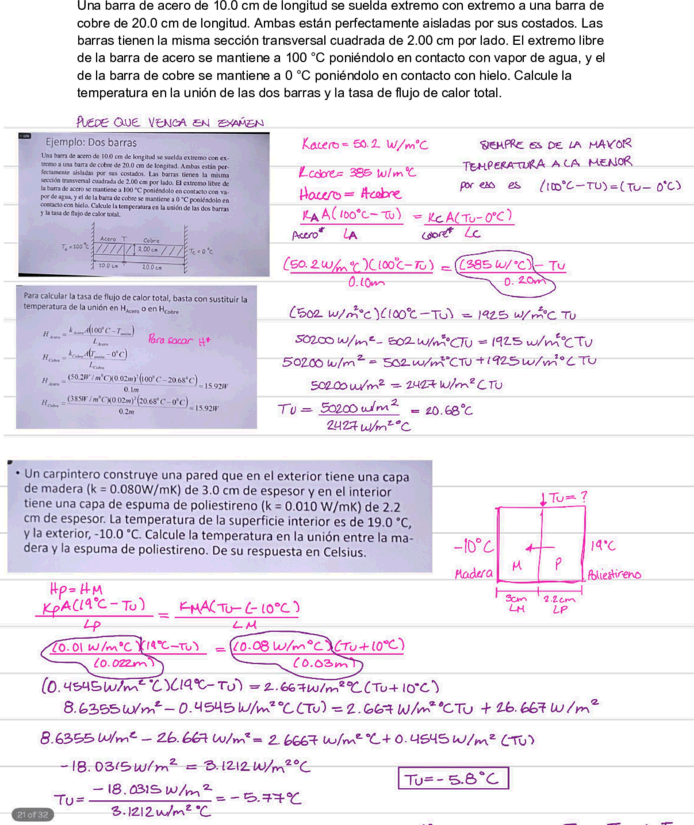 Una barra de acero de 10.0 cm de longitud se suelda extremo con extremo a una barra de
cobre de 20.0 cm de longitud. Ambas están perfectamente aisladas por sus costados. Las
barras tienen la misma sección transversal cuadrada de 2.00 cm por lado. El extremo libre
de la barra de acero se mantiene a 100 °C poniéndolo en contacto con vapor de agua, y el
de la barra de cobre se mantiene a 0 °C poniéndolo en contacto con hielo. Calcule la
temperatura en la unión de las dos barras y la tasa de flujo de calor total.
PUEDE QUE VENGA EN EXAMEN
Ejemplo: Dos barras
Una barra de acero de 10.0 cm de longitud se suelda extremo con ex-
tremo a una barra de cobre de 20.0 cm de longitud. Ambas están per-
fectamente aisladas por sus costados. Las barras tienen la misma
sección transversal cuadrada de 2.00 cm por lado. El extremo libre de
la barra de acero se mantiene a 100 °C poniéndolo en contacto con va-
por de agua, y el de la barra de cobre se mantiene a 0 °C poniéndolo en
contacto con hielo. Calcule la temperatura en la unión de las dos barras
y la tasa de flujo de calor total.
Acero T Cobre
2.00 cm
10.0 cm 20.0 cm
Kacero = 50.2 W/m°C
Kcobre = 385 W/m°C
Hacero = Hcobre
KA A(100°C - TU) = KC A(TU - 0°C)
Acero LA Cobre LC
SIEMPRE ES DE LA MAYOR
TEMPERATURA A LA MENOR
por eso es (100°C - TU) = (TU - 0°C)
(50.2 W/m°C)(100°C - TU) = (385 W/°C) - TU
0.10m 0.20m
(502 W/m²°C)(100°C - TU) = 1925 W/m²°C TU
50200 W/m² - 502 W/m²°C TU = 1925 W/m²°C TU
50200 W/m² = 502 W/m²°C TU + 1925 W/m²°C TU
50200 W/m² = 2427 W/m²°C TU
TU = 50200 W/m² = 20.68°C
2427 W/m²°C
Para calcular la tasa de flujo de calor total, basta con sustituir la
temperatura de la unión en HAcero o en HCobre
HAcero = kAcero A(100°C - Tunión)
LAcero
Para sacar H
HCobre = kCobre A(Tunión - 0°C)
LCobre
HAcero = (50.2W/m°C)(0.02m)²(100°C - 20.68°C) = 15.92W
0.1m
HCobre = (385W/m°C)(0.02m)²(20.68°C - 0°C) = 15.92W
0.2m
• Un carpintero construye una pared que en el exterior tiene una capa
de madera (k = 0.080W/mK) de 3.0 cm de espesor y en el interior
tiene una capa de espuma de poliestireno (k = 0.010 W/mK) de 2.2
cm de espesor. La temperatura de la superficie interior es de 19.0 °C,
y la exterior, -10.0 °C. Calcule la temperatura en la unión entre la ma-
dera y la espuma de poliestireno. De su respuesta en Celsius.
TU = ?
-10°C M P 19°C
Madera Poliestireno
3cm 2.2cm
LM LP
HP = HM
KPA(19°C - TU) = KMA(TU - (-10°C)
LP LM
(0.01 W/m°C)(19°C - TU) = (0.08 W/m°C)(TU + 10°C)
(0.022m) (0.03m)
(0.4545 W/m²°C)(19°C - TU) = 2.667 W/m²°C (TU + 10°C)
8.6355 W/m² - 0.4545 W/m²°C (TU) = 2.667 W/m²°C TU + 26.667 W/m²
8.6355 W/m² - 26.667 W/m² = 2.6667 W/m²°C + 0.4545 W/m² (TU)
-18.0315 W/m² = 3.1212 W/m²°C
TU = -18.0315 W/m² = -5.77°C
3.1212 W/m²°C
TU = -5.8°C
21 of 32